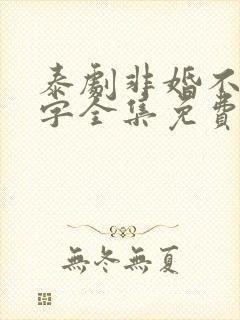 泰劇非婚不
字全集免費
無冬無夏